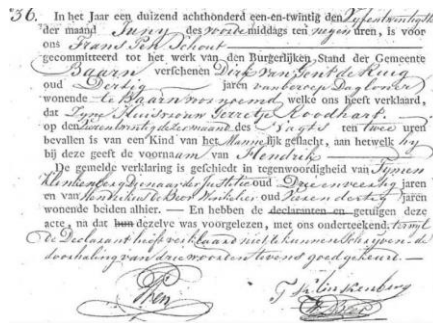 36. In het Jaar een duizend achthonderd een-en-twintig den Vyfentwintigste
der maand Juny des voormiddags ten negen uren, is voor
ons Frans Pen Schout
gecommitteerd tot het werk van den Burgerlijken Stand der Gemeente
Baarn verschenen Dirk van Gent de Ruig
oud Dertig jaren van beroep Daglooner
wonende te Baarn voornoemd welke ons heeft verklaard,
dat Zyne Huisvrouw Gerretje Roodhart
op den deezer maand des Nagts ten twee uren
bevallen is van een Kind van het Mannelijk geslacht, aan hetwelk hy
bij deze geeft de voornaam van Hendrik
De gemelde verklaring is geschiedt in tegenwoordigheid van Tymen
Klinkenberg Dienaar der Justitie oud Drieenveertig jaren
en van Hendrikus de Beer Winkelier oud Zesendertig jaren
wonende beiden alhier. — En hebben de declaranten en getuigen deze
acte, na dat hun dezelve was voorgelezen, met ons onderteekend, terwyl
de Declarant heeft verklaard niet te kunnen Schryven. de
doorhaling van drie woorden tevens goedgekeurd.
Pen
T Klinkenberg